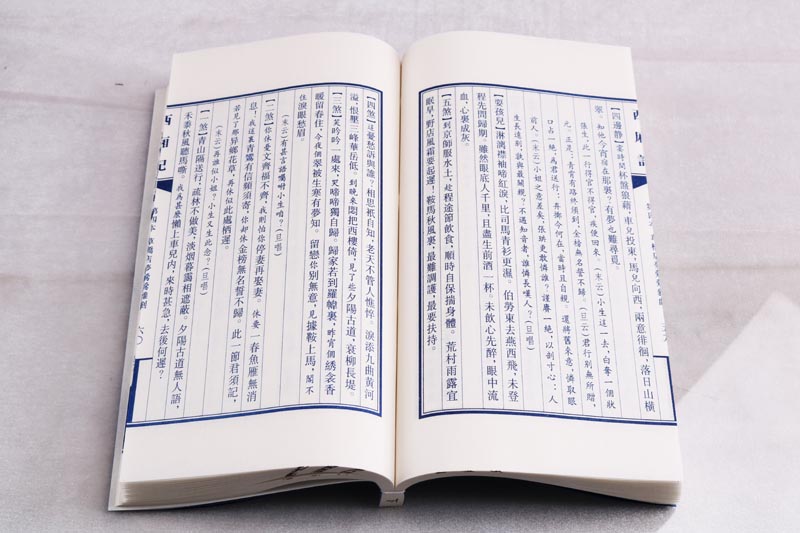 西廂記
【四邊靜】霎時間杯盤狼藉，車兒投東，馬兒向西，兩意徘徊，落日山橫
翠。知他今宵宿在那裏？有夢也難尋覓。
張生，此一行得官不得官，疾便回來。（末云）小生這一去，白奪一個狀
元，正是：青霄有路終須到，金榜無名誓不歸。（旦云）君行別無所贈，
口占一絕，為君送行：弃擲今何在，當時且自親。還將舊來意，憐取眼
前人。（末云）小姐之意差矣，張珙更敢憐誰？謹賡一絕，以剖寸心：人
生長遠別，孰與最關親？不遇知音者，誰憐長嘆人？（旦唱）
【耍孩兒】淋漓襟袖啼紅淚，比司馬青衫更濕。伯勞東去燕西飛，未登
程先問歸期。雖然眼底人千里，且盡生前酒一杯。未飲心先醉，眼中流
血，心裏成灰。
【五煞】到京師服水土，趁程途節飲食，順時自保揣身體。荒村雨露宜
眠早，野店風霜要起遲！鞍馬秋風裏，最難調護，最要扶持。
【四煞】這憂愁訴與誰？相思衹自知，老天不管人憔悴。淚添九曲黃河
溢，恨壓三峰華岳低。到晚來悶把西樓倚，見了些夕陽古道，衰柳長堤。
【三煞】笑吟吟一處來，哭啼啼獨自歸。歸家若到羅幃裏，昨宵個綉衾香
暖留春住，今夜個翠被生寒有夢知。留戀你別無意，見據鞍上馬，閣不
住淚眼愁眉。
（末云）有甚言語囑咐小生咱？（旦唱）
【二煞】你休憂文齊福不齊，我則怕你停妻再娶妻。休要一春魚雁無消
息！我這裏青鸞有信頻須寄，你却休金榜無名誓不歸。此一節君須記，
若見了那异鄉花草，再休似此處栖遲。
（末云）再誰似小姐？小生又生此念？（旦唱）
【一煞】青山隔送行，疏林不做美，淡烟暮靄相遮蔽。夕陽古道無人語，
禾黍秋風聽馬嘶。我為甚麼懶上車兒內，來時甚急，去後何遲？
西廂記
六〇